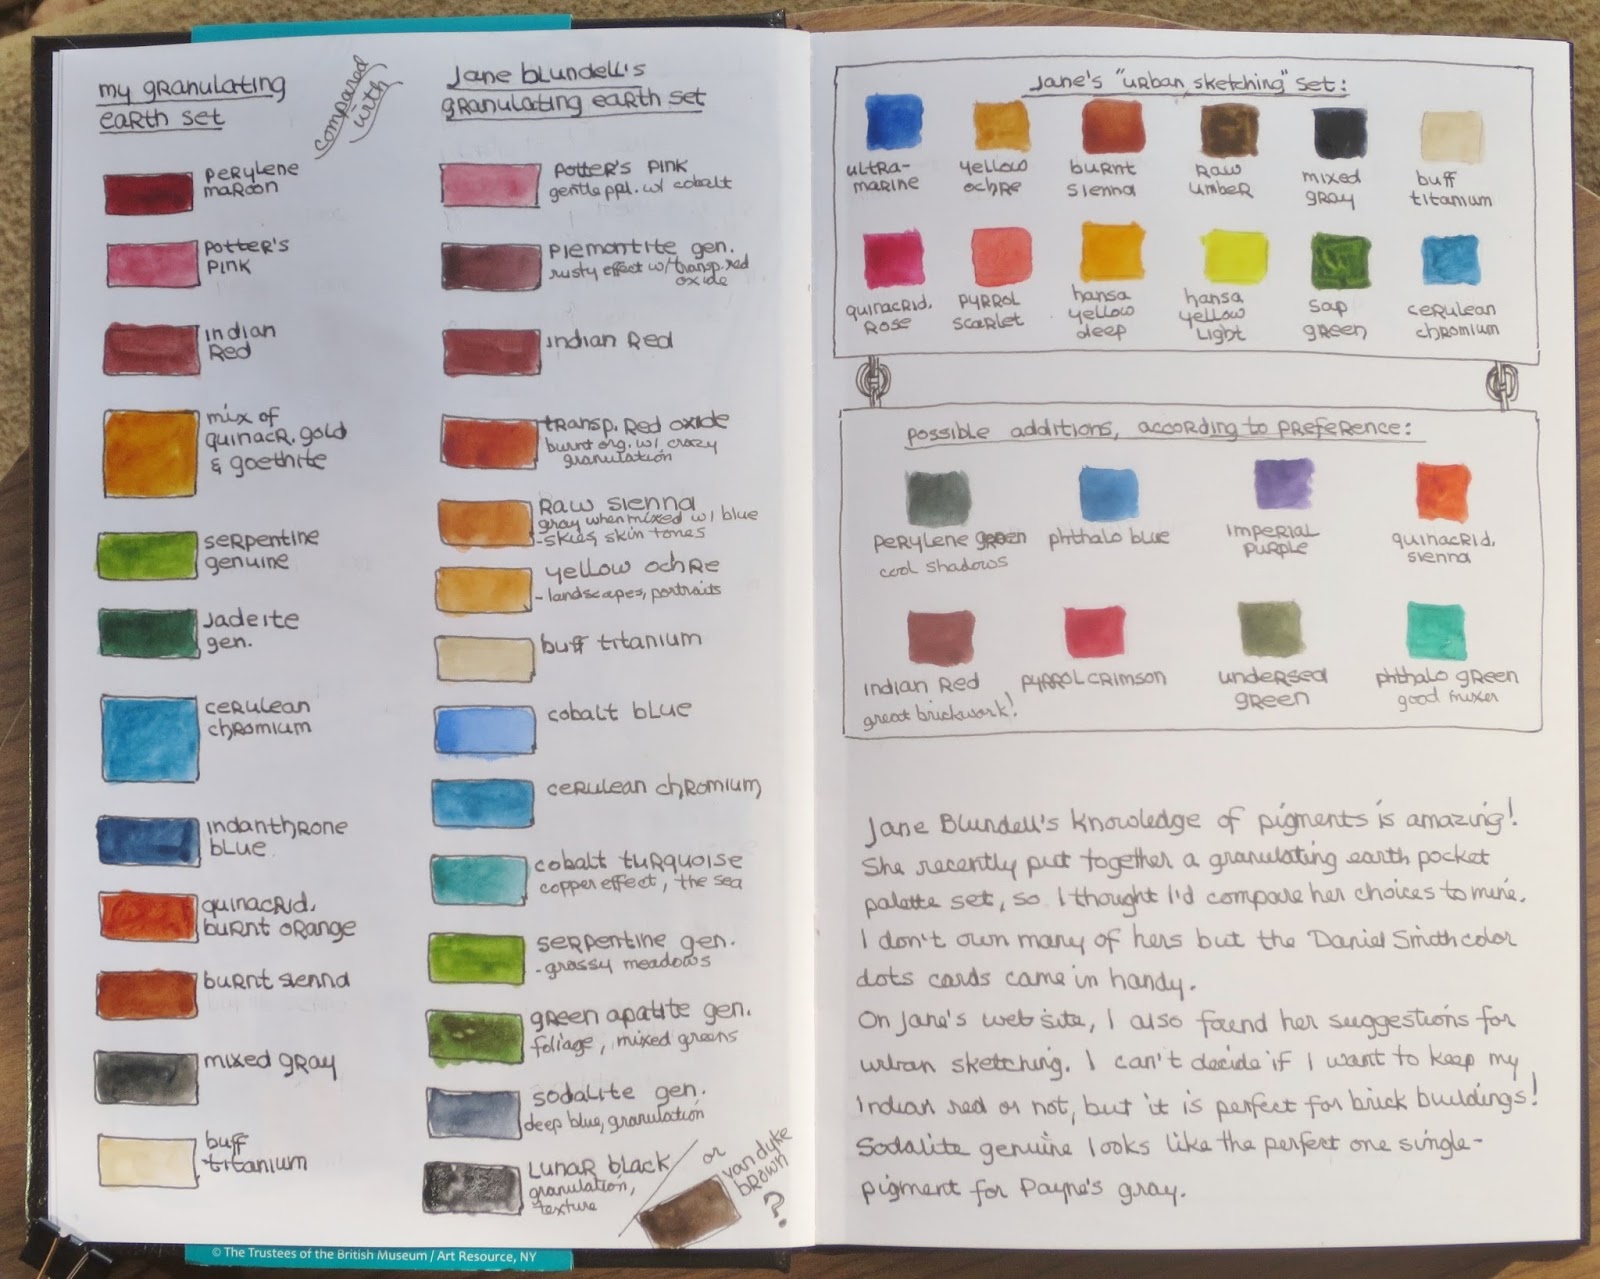 my granulating
earth set
compared
with
perylene
maroon
potter's
pink
indian
red
mix of
quinacr. gold
& goethite
serpentine
genuine
jadeite
gen.
cerulean
chromium
indanthrone
blue
quinacrid.
burnt orange
burnt sienna
mixed gray
buff
titanium
Jane Blundell's
granulating earth set
potter's pink
gentle ppl. w/ cobalt
piemontite gen.
rusty effect w/ transp. red
oxide
indian red
transp. red oxide
burnt org. w/ crazy
granulation
raw sienna
gray when mixed w/ blue
- skies, skin tones
yellow ochre
- landscapes, portraits
buff titanium
cobalt blue
cerulean chromium
cobalt turquoise
copper effect, the sea
serpentine gen.
- grassy meadows
green apatite gen.
foliage, mixed greens
sodalite gen.
deep blue, granulation
lunar black
granulation,
texture
or
van dyke
brown
?
© The Trustees of the British Museum / Art Resource, NY
Jane's "urban sketching" set:
ultra-
marine
yellow
ochre
burnt
sienna
raw
umber
mixed
gray
buff
titanium
quinacrid.
rose
pyrrol
scarlet
hansa
yellow
deep
hansa
yellow
light
sap
green
cerulean
chromium
possible additions, according to preference:
perylene green
cool shadows
phthalo blue
imperial
purple
quinacrid.
sienna
indian red
great brickwork!
pyrrol crimson
undersea
green
phthalo green
good mixer
Jane Blundell's knowledge of pigments is amazing!
She recently put together a granulating earth pocket
palette set, so I thought I'd compare her choices to mine.
I don't own many of hers but the Daniel Smith color
dots cards came in handy.
On Jane's web site, I also found her suggestions for
urban sketching. I can't decide if I want to keep my
Indian red or not, but it is perfect for brick buildings!
Sodalite genuine looks like the perfect one single-
pigment for Payne's gray.